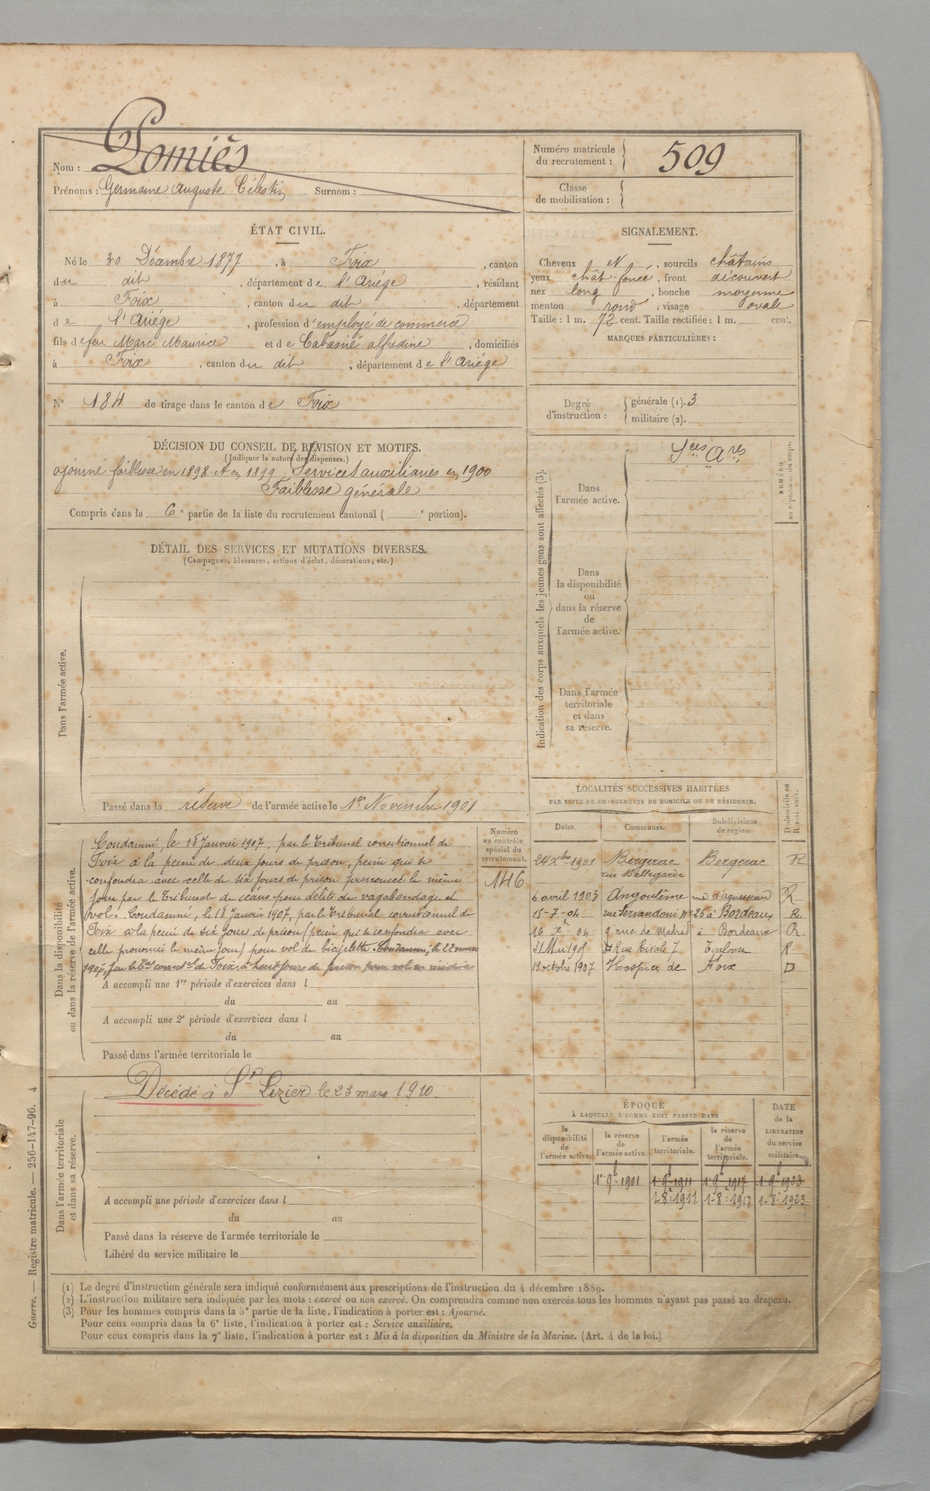 Nom : Pomiès
Prénoms : Germain Auguste Célestin Surnom :
Numéro matricule du recrutement : 509
Classe de mobilisation :
ÉTAT CIVIL.
Né le 30 Décembre 1877, à Foix, canton
du dit, département de l'Ariége, résidant
à Foix, canton du dit, département
de l'Ariége, profession d'employé de commerce
fils de feu Marc Maurice et de Cabasné alfadine, domiciliés
à Foix, canton du dit, département de l'Ariége
N° 184 de tirage dans le canton de Foix
SIGNALEMENT.
Cheveux N, sourcils châtains
yeux chât. foncé, front découvert
nez long, bouche moyenne
menton rond, visage ovale
Taille : 1 m. 72 cent. Taille rectifiée : 1 m. cent.
MARQUES PARTICULIÈRES :
Degré d'instruction : générale (1). 3
militaire (2).
DÉCISION DU CONSEIL DE RÉVISION ET MOTIFS.
(Indiquer la nature des dispenses.)
ajourné faiblesse en 1898 et en 1899. Services auxiliaires en 1900
Faiblesse générale
Compris dans la 6e partie de la liste du recrutement cantonal ( e portion).
DÉTAIL DES SERVICES ET MUTATIONS DIVERSES.
(Campagnes, blessures, actions d'éclat, décorations, etc.)
Dans l'armée active.
Passé dans la réserve de l'armée active le 1er Novembre 1901
Indication des corps auxquels les jeunes gens sont affectés (3).
Dans l'armée active.
Sces Ares
Dans la disponibilité ou dans la réserve de l'armée active.
Dans l'armée territoriale et dans sa réserve.
Dans la disponibilité ou dans la réserve de l'armée active.
Condamné, le 18 Janvier 1907, par le Tribunal correctionnel de
Foix à la peine de deux jours de prison, peine qui se
confondra avec celle de six jours de prison prononcée le même
jour par le Tribunal de céans pour délits de vagabondage et
vol. Condamné, le 18 Janvier 1907, par le Tribunal correctionnel de
Foix à la peine de six jours de prison (peine qui se confondra avec
celle prononcée le même jour) pour vol de bicyclette.
Numéro au contrôle spécial du recrutement.
146
A accompli une 1re période d'exercices dans l
du au
A accompli une 2e période d'exercices dans l
du au
Passé dans l'armée territoriale le
LOCALITÉS SUCCESSIVES HABITÉES
PAR SUITE DE CHANGEMENTS DE DOMICILE OU DE RÉSIDENCE.
Dates. Communes. Subdivisions de région. D domicile ou R résidence.
24 Xbre 1901 Bergerac Bergerac R
rue Bellegarde
6 avril 1903 Angoulème R
15-7-04 rue Servandoni n° 26 à Bordeaux R
16 Xe 04 9 rue de Madrid à Bordeaux R
1905 Toulon R
19 octobre 1907 Hospice de Foix D
Dans l'armée territoriale et dans sa réserve.
Décédé à St Lizier le 23 mars 1910.
A accompli une période d'exercices dans l
du au
Passé dans la réserve de l'armée territoriale le
Libéré du service militaire le
ÉPOQUE
À LAQUELLE L'HOMME DOIT PASSER DANS
la disponibilité de l'armée active. la réserve de l'armée active. l'armée territoriale. la réserve de l'armée territoriale.
DATE de la LIBÉRATION du service militaire.
1er 9e 1901 1er 9e 1911 1er 9e 1917 1er 9e 1923
1-8-1911 1-8-1917 1-8-1923
(1) Le degré d'instruction générale sera indiqué conformément aux prescriptions de l'instruction du 4 décembre 1889.
(2) L'instruction militaire sera indiquée par les mots : exercé ou non exercé. On comprendra comme non exercés tous les hommes n'ayant pas passé au drapeau.
(3) Pour les hommes compris dans la 5e partie de la liste, l'indication à porter est : Ajourné.
Pour ceux compris dans la 6e liste, l'indication à porter est : Service auxiliaire.
Pour ceux compris dans la 7e liste, l'indication à porter est : Mis à la disposition du Ministre de la Marine. (Art. 4 de la loi.)
Guerre. — Registre matricule. — 256-147-96. 4